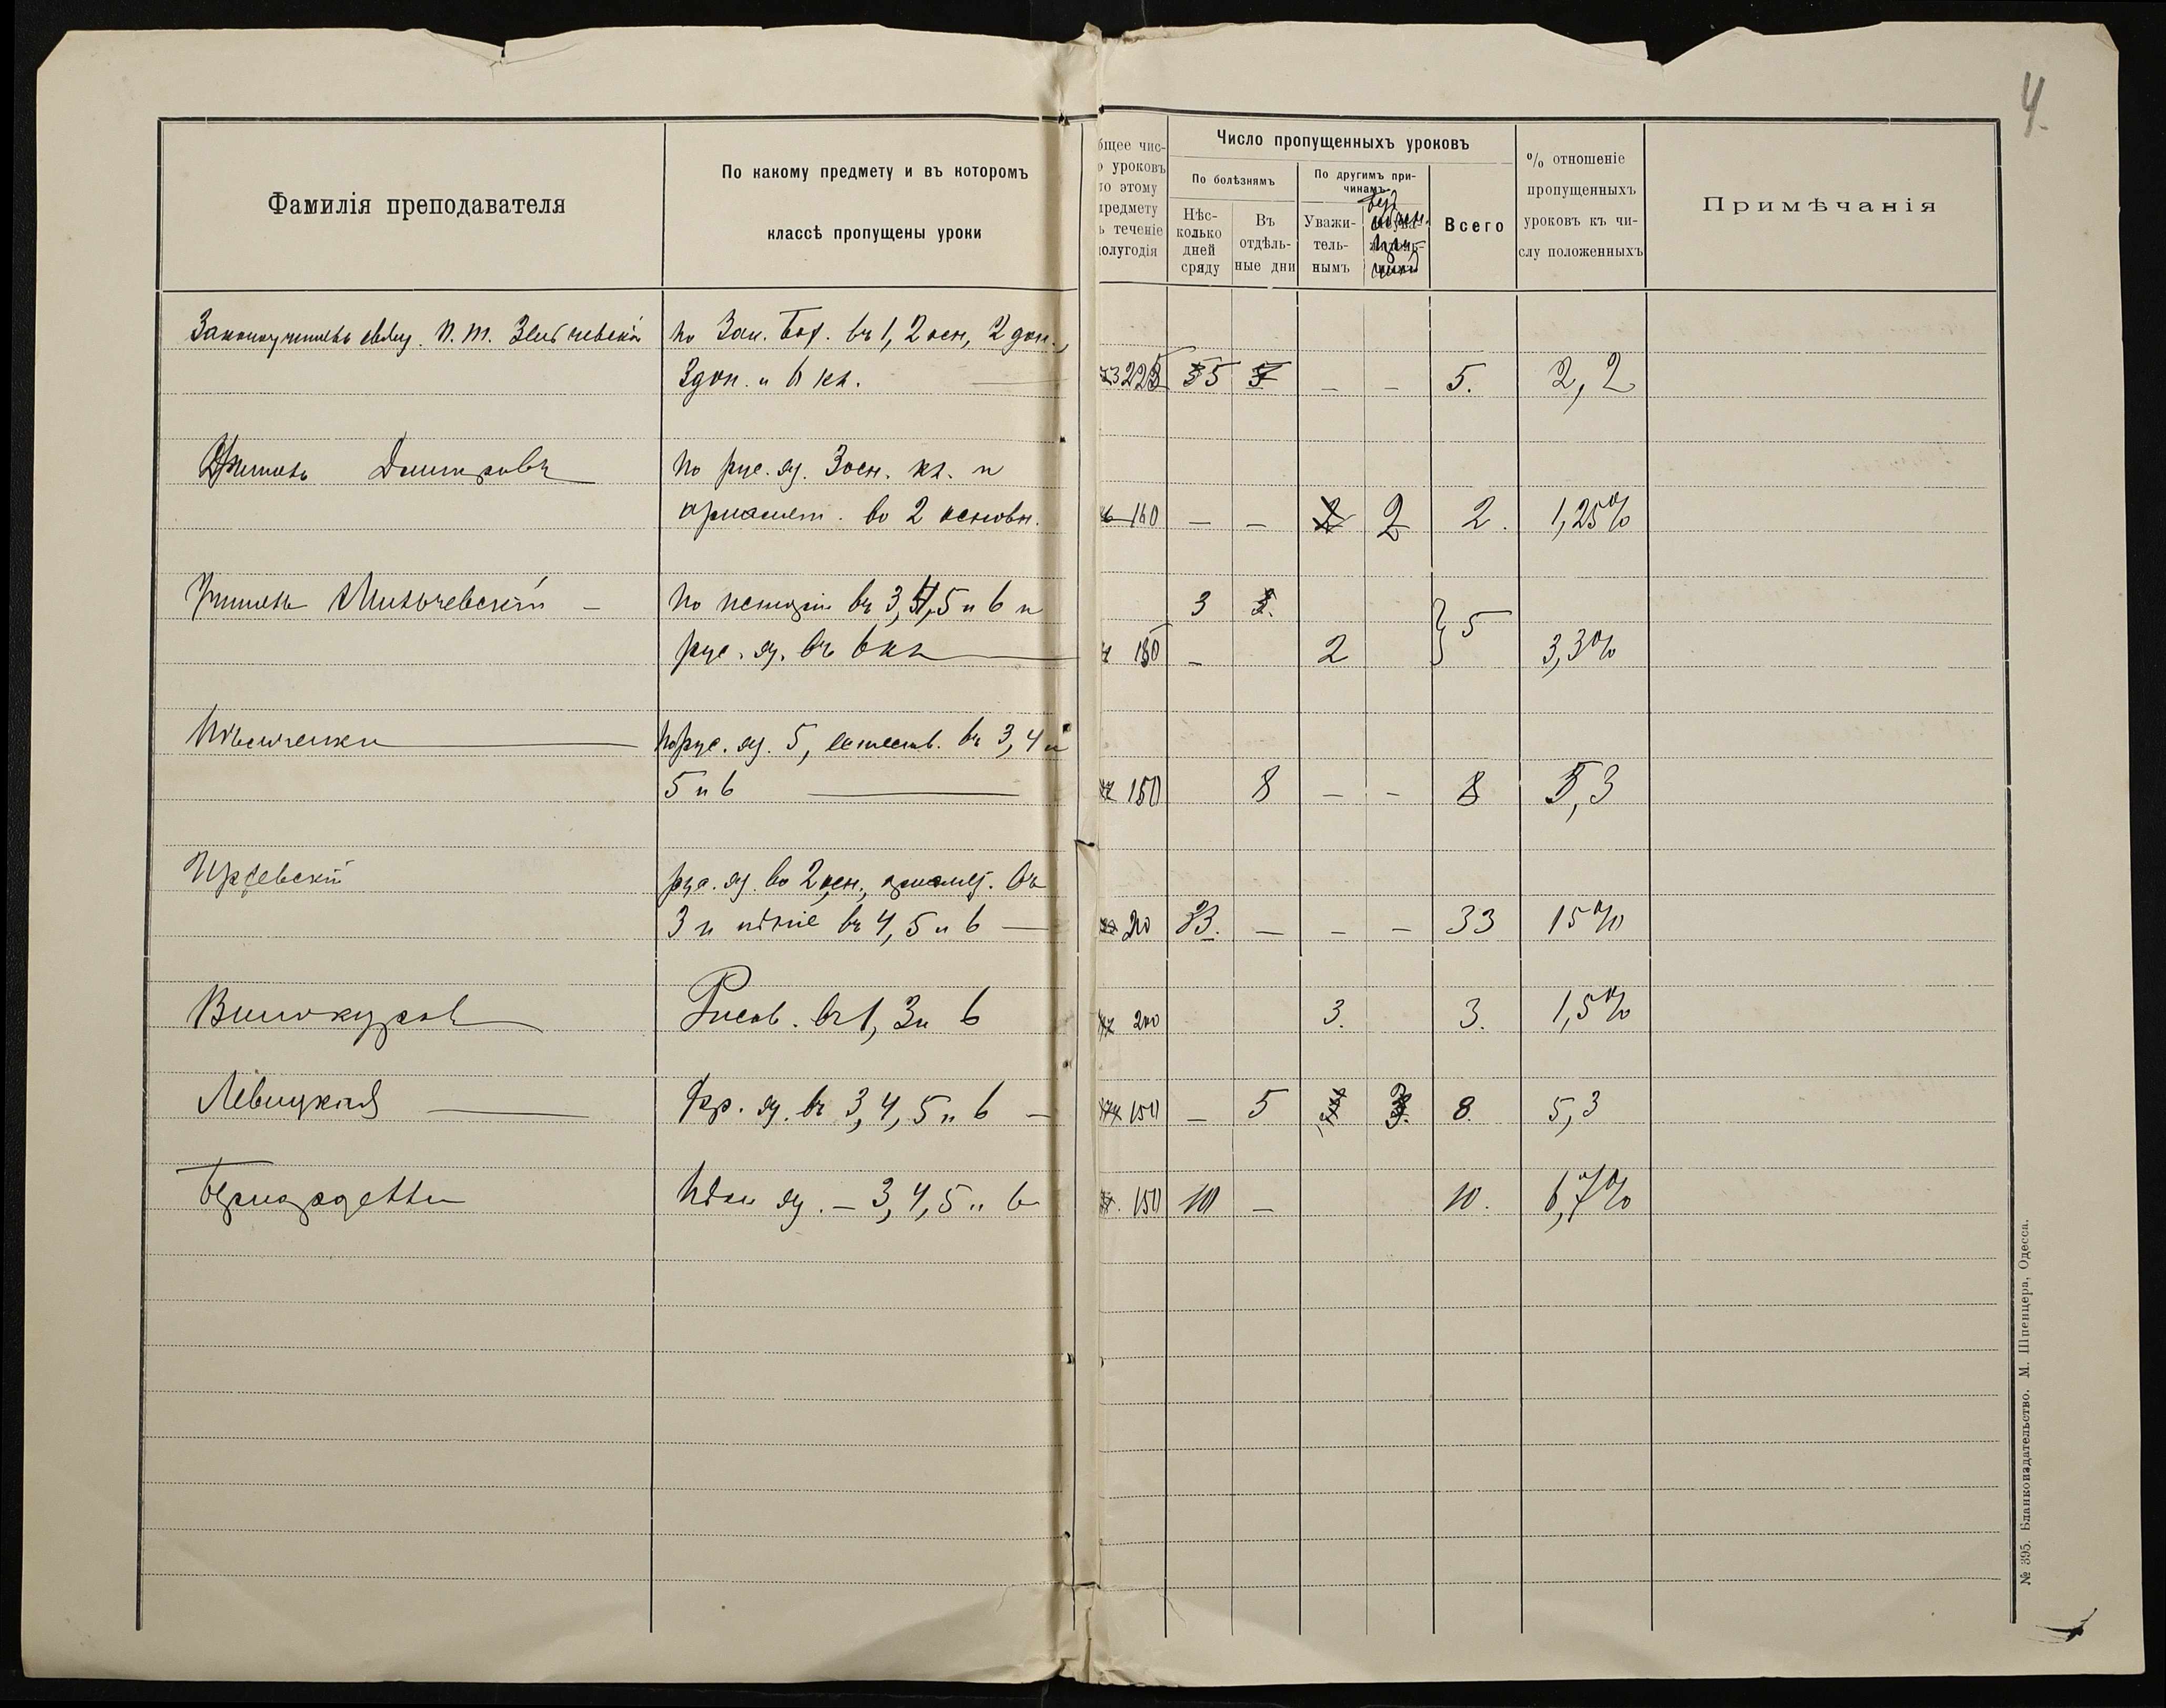 4.
Фамилія преподавателя
По какому предмету и въ которомъ
классѣ пропущены уроки
бщее чис-
о уроковъ
по этому
предмету
ъ теченіе
олугодія
Число пропущенныхъ уроковъ
По болѣзнямъ
По другимъ при-
чинамъ
Нѣс-
колько
дней
сряду
Въ
отдѣль-
ные дни
Уважи-
тель-
нымъ
Всего
% отношеніе
пропущенныхъ
уроковъ къ чи-
слу положенныхъ
Примѣчанія
Законоучитель свящ. П. М.
по Зак. Бож. въ 1, 2 осн, 2 доп.,
3 доп. и 6 кл. 5 – – 5. 2,2
Учитель Дмитровъ
по рус. яз. 3 осн. кл. и
ариѳмет. во 2 основн. 160 – – 2 2. 1,25%
Учитель Мильчевскій –
по исторіи въ 3, 4, 5 и 6 и 3
рус. яз. въ 6 кл 150 – 2 5 3,3%
по рус. яз. 5, естеств. въ 3, 4 и
5 и 6 150 8 – – 8 5,3
рус. яз. во 2 осн., ариѳмет. въ
3 и пѣніе въ 4, 5 и 6 – – – – 33 15%
Винокуровъ Рисов. въ 1, 3 и 6 200 3. 3. 1,5%
Левицкая Фр. яз. въ 3, 4, 5 и 6 – 150 – 5 3. 8. 5,3
Бернардетти яз. – 3, 4, 5 и 6 150 10 – 10. 6,7%
№ 395. Бланкоиздательство. М. Шпенцера, Одесса.